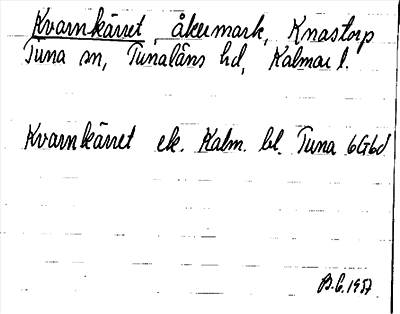 Kvarnkärret, åkermark, Knastorp
Tuna sn, Tunaläns hd, Kalmar l.
Kvarnkärret ek. Kalm. bl. Tuna 6G6d
B.G. 1957